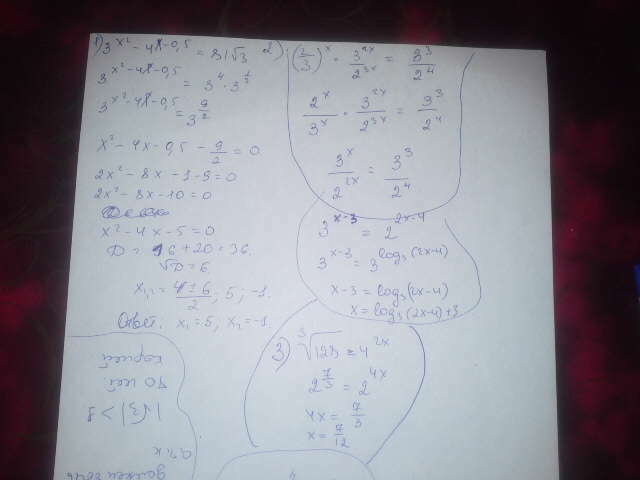 1) 3^(x²-4x-0,5) = 81√3
3^(x²-4x-0,5) = 3⁴·3^(1/2)
3^(x²-4x-0,5) = 3^(9/2)
x² - 4x - 0,5 - 9/2 = 0
2x² - 8x - 1 - 9 = 0
2x² - 8x - 10 = 0
x² - 4x - 5 = 0
D = 16 + 20 = 36.
√D = 6
x₁,₂ = (4 ± 6)/2; 5; -1.
Ответ. x₁ = 5, x₂ = -1
2) (2/3)^x · 3^(2x)/2^(3x) = 3³/2⁴
2^x/3^x · 3^(2x)/2^(3x) = 3³/2⁴
3^x/2^(2x) = 3³/2⁴
3^(x-3) = 2^(2x-4)
3^(x-3) = 3^(log₃(2x-4))
x-3 = log₃(2x-4)
x = log₃(2x-4)+3
3) ³√128 = 4^(2x)
2^(7/3) = 2^(4x)
4x = 7/3
x = 7/12
|√3| > 8
то
корней